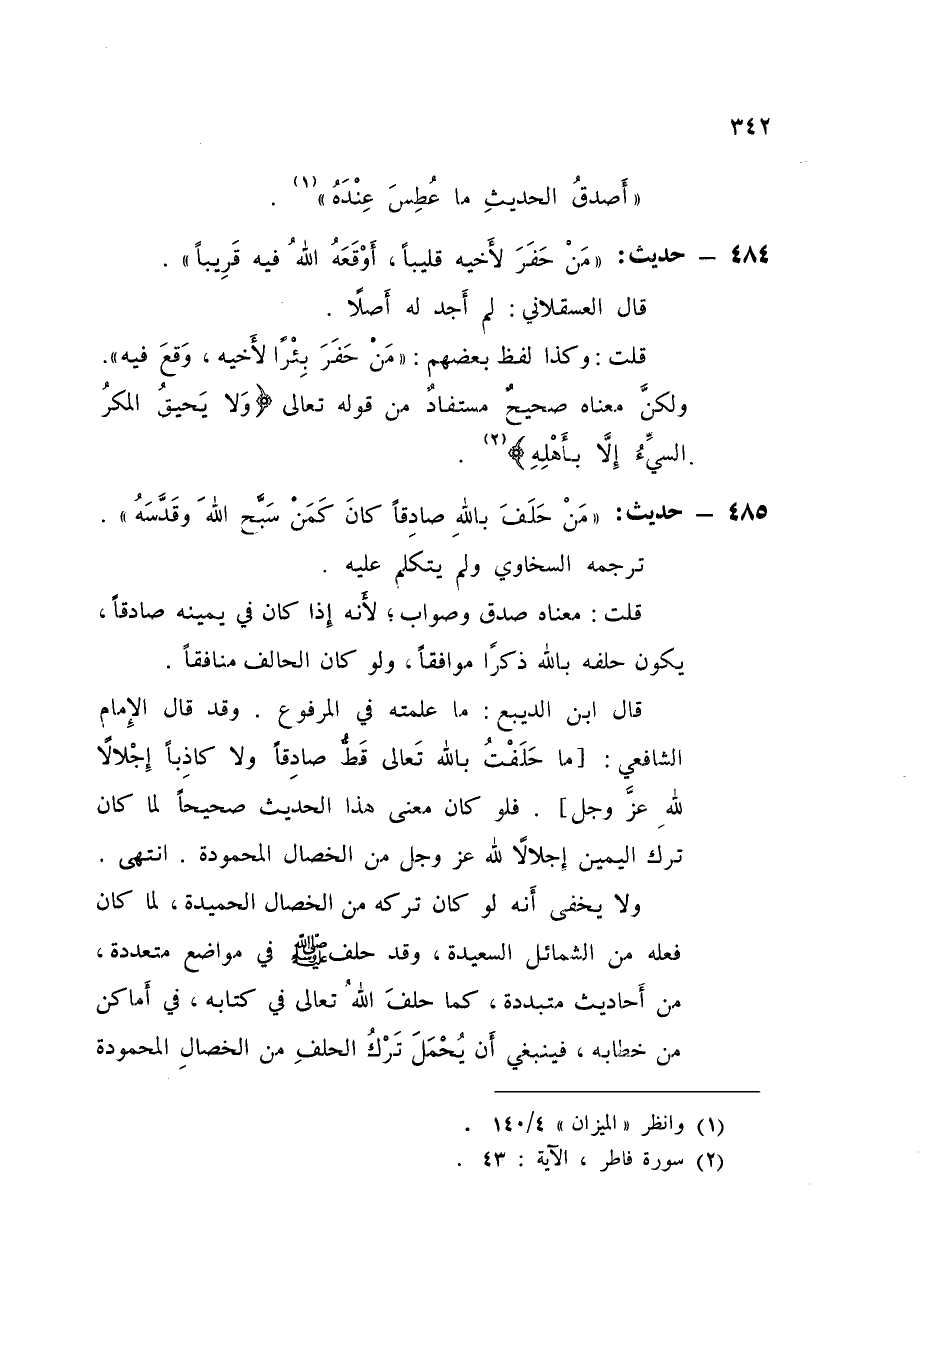 ٣٤٢
« أَصدقُ الحديثِ ما عُطِسَ عِنْدَهُ »(١) .
٤٨٤ – حديث: « مَنْ حَفَرَ لأخيه قليباً ، أَوْقَعَهُ اللهُ فيه قَرِيباً » .
قال العسقلاني : لم أجد له أَصلًا .
قلت : وكذا لفظ بعضهم : « مَنْ حَفَرَ بِئْرًا لأَخيه ، وَقعَ فيه».
ولكنَّ معناه صحيحٌ مستفادٌ من قوله تعالى ﴿وَلا يَحيقُ المكرُ
السيِّءُ إِلَّا بأَهْلِهِ﴾(٢) .
٤٨٥ – حديث: « مَنْ حَلَفَ باللهِ صادِقاً كانَ كَمَنْ سَبَّحِ اللهَ وقَدَّسَهُ » .
ترجمه السخاوي ولم يتكلم عليه .
قلت : معناه صدق وصواب ؛ لأَنه إِذا كان في يمينه صادقاً ،
يكون حلفه بالله ذكرًا موافقاً ، ولو كان الحالف منافقاً .
قال ابن الديبع : ما علمته في المرفوع . وقد قال الإِمام
الشافعي : [ما حَلَفْتُ بالله تَعالى قَطُّ صادِقاً ولا كاذِباً إِجْلالًا
للهِ عزَّ وجل] . فلو كان معنى هذا الحديث صحيحاً لما كان
ترك اليمين إجلالًا لله عز وجل من الخصال المحمودة . انتهى .
ولا يخفى أَنه لو كان تركه من الخصال الحميدة ، لما كان
فعله من الشمائل السعيدة ، وقد حلف ﷺ في مواضع متعددة ،
من أَحاديث متبددة ، كما حلفَ اللهُ تعالى في كتابه ، في أَماكن
من خطابه ، فينبغي أَن يُحْمَلَ تَرْكُ الحلفِ من الخصالِ المحمودة
(١) وانظر « الميزان » ١٤٠/٤ .
(٢) سورة فاطر ، الآية : ٤٣ .